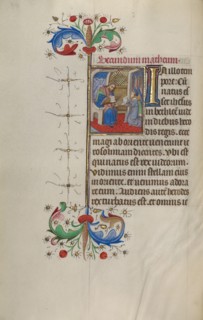 Secundum matheum
In illo tem
pore Cū
natus es
set ihesus
in bethleem iude
in diebus hero
dis regis. ecce
magi ab oriente uenerunt ie
rosolimam dicentes. Vbi est
qui natus est rex iudeorum.
vidimus enim stellam eius
in oriente. et uenimus adora
re eum. Audiens autem herodes
rex turbatus est. et omnis ie